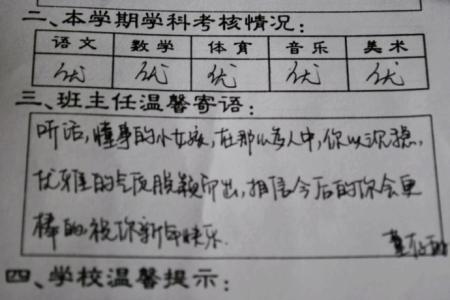 二、本学期学科考核情况：
语文 数学 体育 音乐 美术
优 优 优 优 优
三、班主任温馨寄语：
听话，懂事的小女孩，在那么多人中，你以沉稳，
优雅的气质脱颖而出，相信今后的你会更
棒的。祝你新年快乐。
四、学校温馨提示：